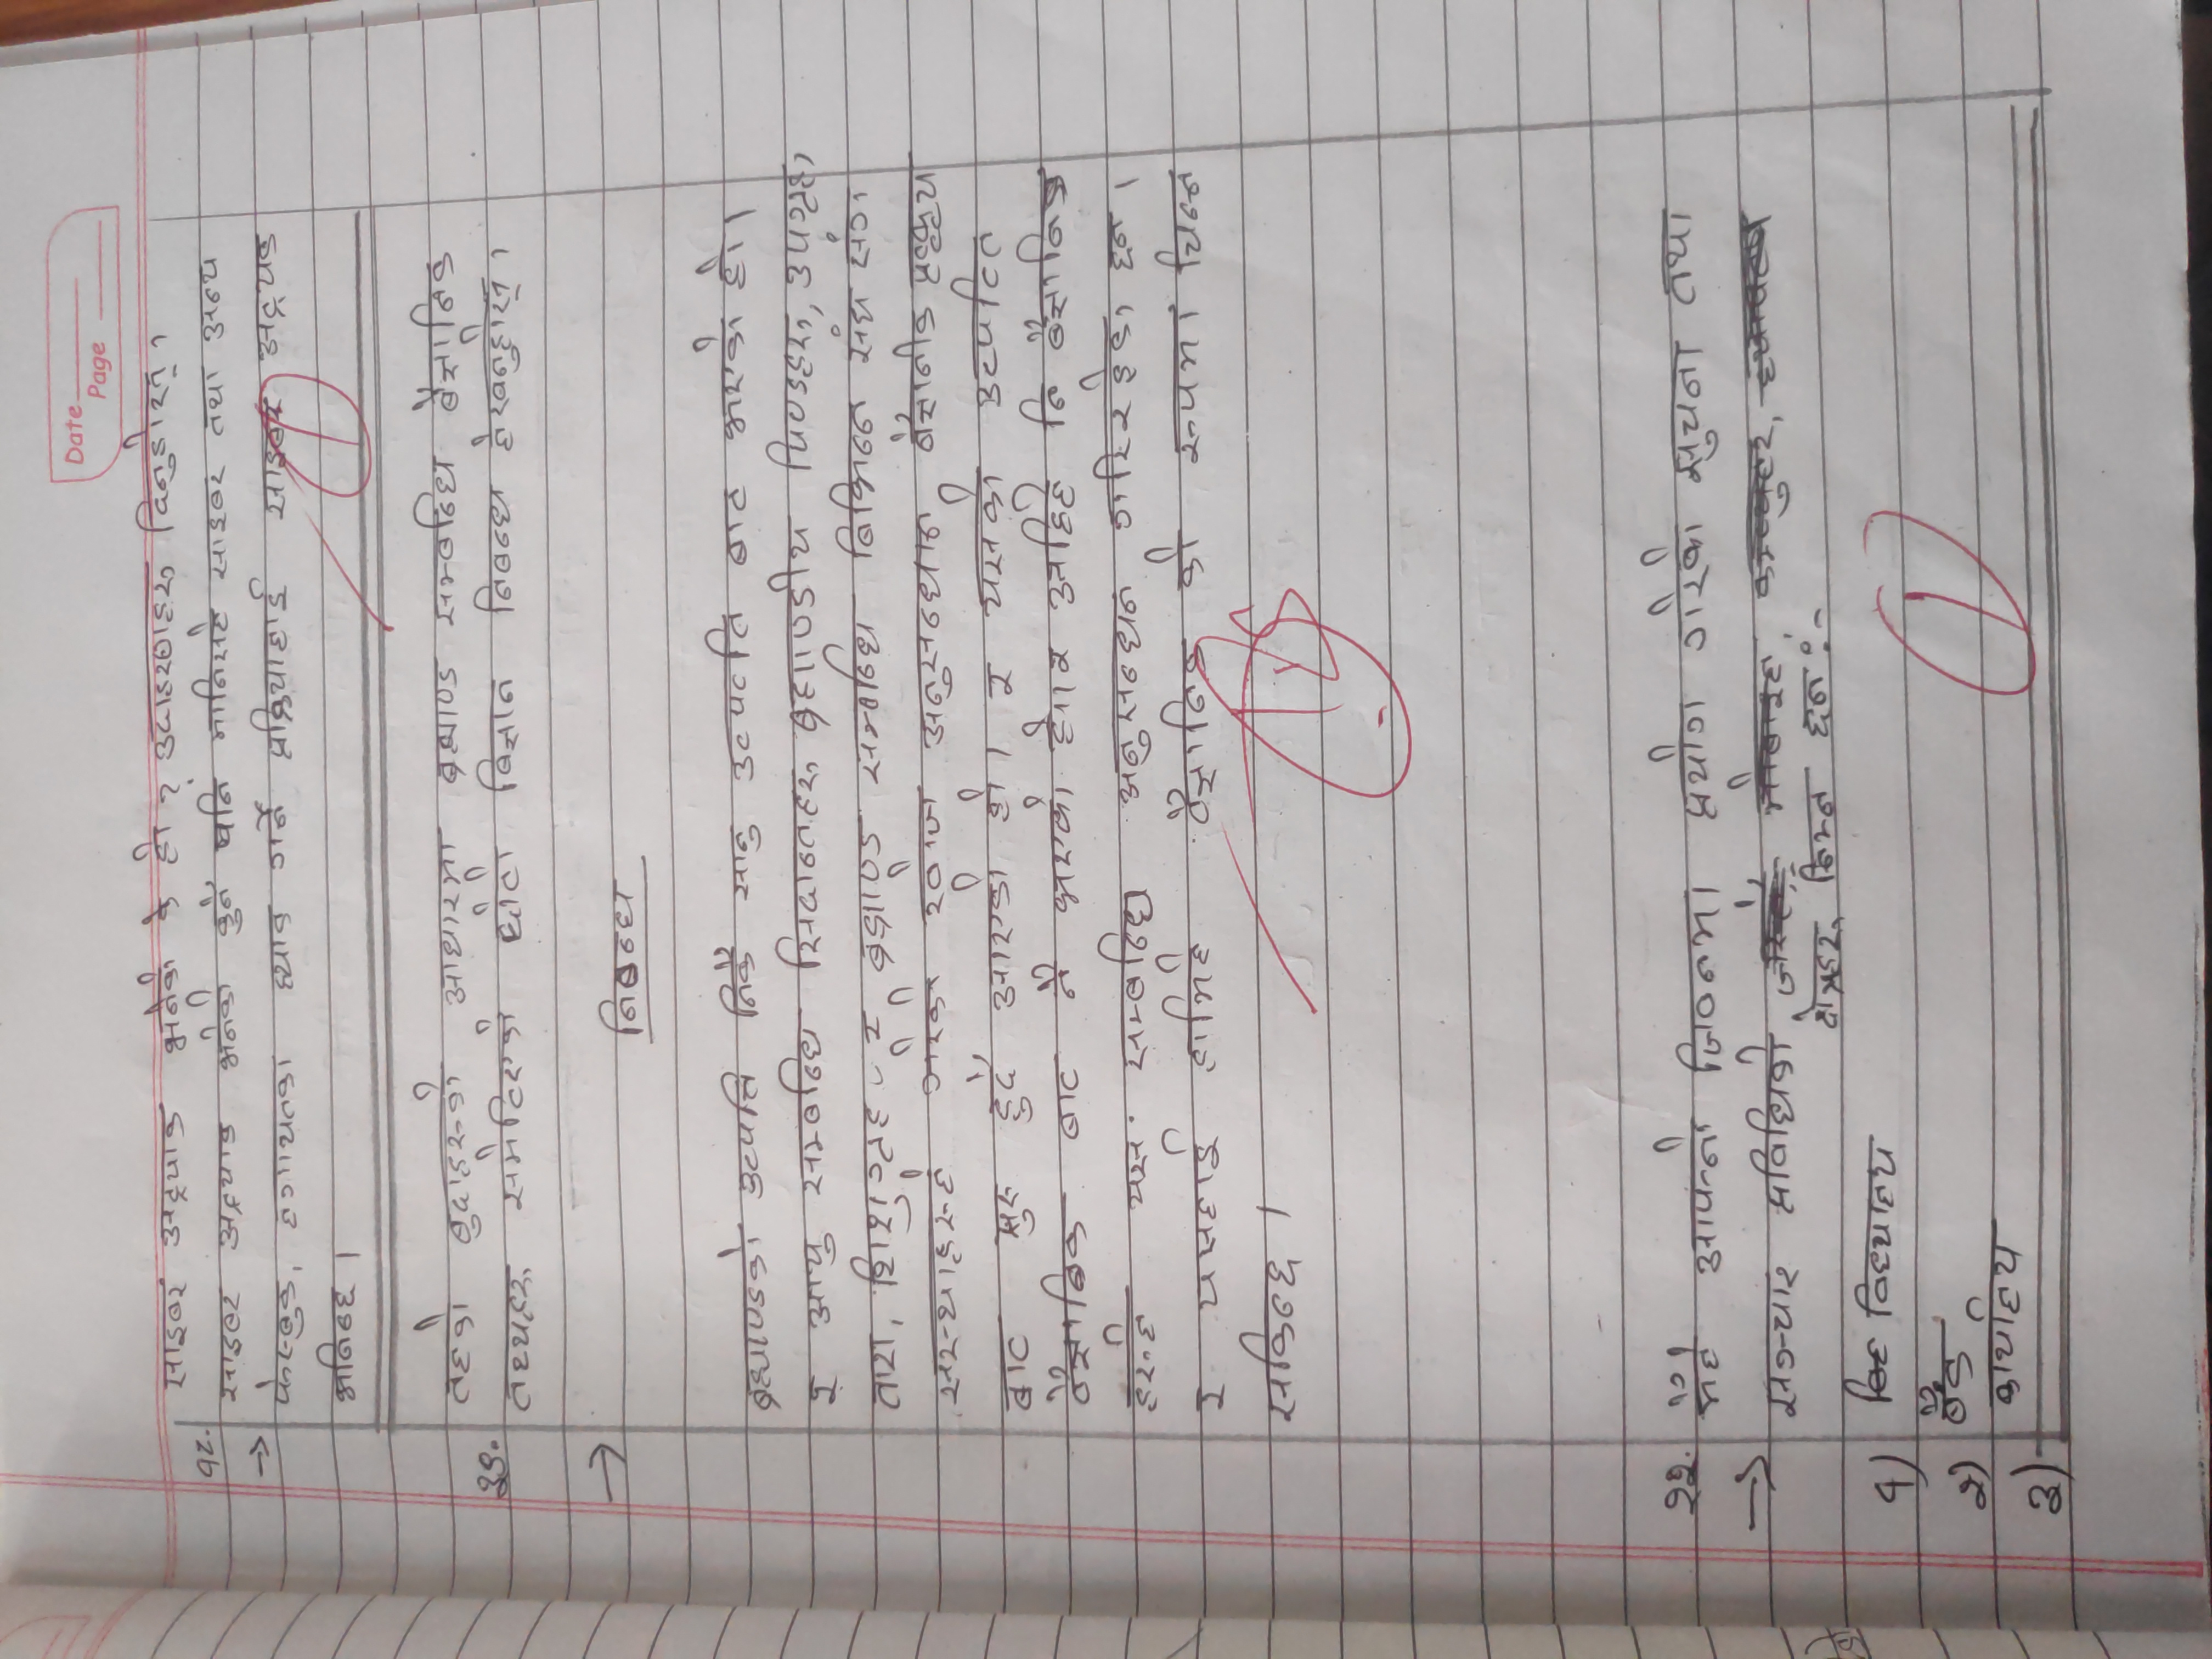 Date
Page
साइबर अट्याक भनेको के हो ? उदाहरणहरु दिनुहोस् ।
१८.
साइबर अट्याक भनेको कुनै पनि मानिसले साइबर तथा अन्य
→ फेसबुक, लगायतका ह्याक गर्ने प्रक्रियालाई साइबर अट्याक
भनिन्छ ।
तलको बुदाहरुको आधारमा ब्रह्माण्ड सम्बन्धि बैज्ञानिक
३९. तथ्यहरु समेटिएको छोटो बिज्ञान निबन्ध लेख्नुहोस् ।
→ निबन्ध
ब्रह्माण्डको उत्पत्ति निकै सानु उत्पत्ति बाट भएको हो ।
र आयु सम्बन्धि सिदान्तहरु ब्रह्माण्डीय पिण्डहरु, उपग्रह,
तारा, शिशुग्रह र ब्रह्माण्ड सम्बन्धि बिभिन्न संघ संग
संस्थाहरुले गरेको खोज अनुसन्धान बैज्ञानीक
बाट सुरु हुदै आएको हो । र यसको उत्पत्ति
बैज्ञानिक बाट नै भएको हो । र अहिले नि बैज्ञानिक
हरुले यस सम्बन्धि अनुसन्धन गरिरहेका छन ।
र यसलाई हामिले बैज्ञानिक को रुपमा चिन्न
सकिन्छ ।
२२. मैले आफ्नो जिवनमा प्रयोग गरेको सुचना तथा
→ सञ्चार प्रविधिको
क्षेत्रहरु निम्न छन :-
१) विध्यालय
२) बैंक
३) कार्यालय